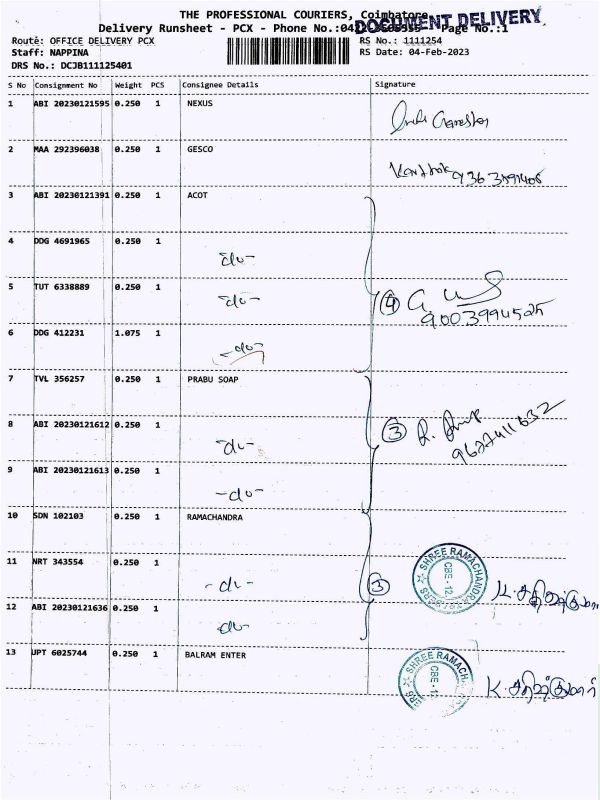 THE PROFESSIONAL COURIERS, Coimbatore
DOCUMENT DELIVERY
Delivery Runsheet - PCX - Phone No.: Page No.:1
Route: OFFICE DELIVERY PCX RS No.: 1111254
Staff: NAPPINA RS Date: 04-Feb-2023
DRS No.: DCJB111125401
S No Consignment No Weight PCS Consignee Details Signature
1 ABI 20230121595 0.250 1 NEXUS
2 MAA 292396038 0.250 1 GESCO
Karthik
3 ABI 20230121391 0.250 1 ACOT
4 DDG 4691965 0.250 1 -do-
5 TUT 6338889 0.250 1 -do-
④
9003994525
6 DDG 412231 1.075 1 -do-
7 TVL 356257 0.250 1 PRABU SOAP
8 ABI 20230121612 0.250 1 -do-
③
9627411632
9 ABI 20230121613 0.250 1 -do-
10 SDN 102103 0.250 1 RAMACHANDRA
11 NRT 343554 0.250 1 -do-
③ SHREE RAMACHANDRA CBE-12
12 ABI 20230121636 0.250 1 -do-
13 UPT 6025744 0.250 1 BALRAM ENTER
SHREE RAMACH CBE-12